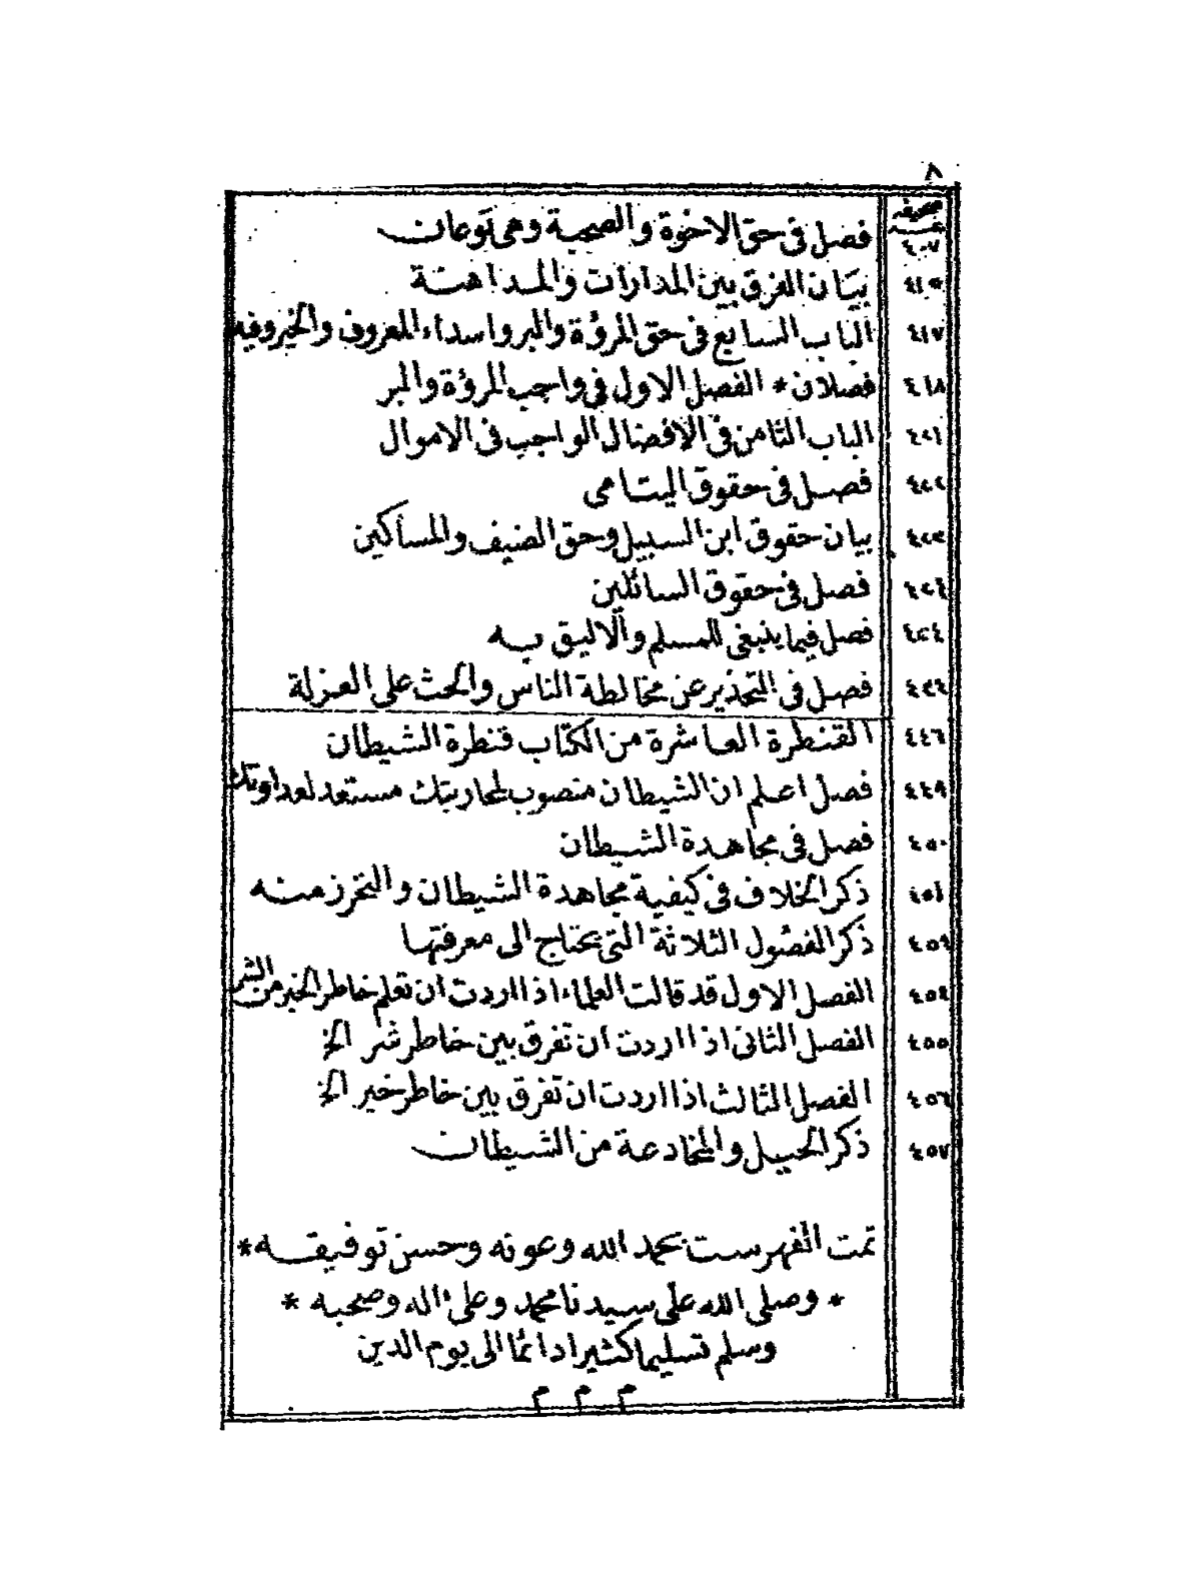 ٨
صحيفه
٤٠٧ فصل فى حق الاخوة والصحبة وهى نوعان
٤١٥ بيان الفرق بين المدارات والمداهنة
٤١٧ الباب السابع فى حق المرؤة والبر واسداء المعروف والخير وفيه
٤١٨ فصلان * الفصل الاول فى واجب المرؤة والبر
٤٢١ الباب الثامن فى الافضال الواجب فى الاموال
٤٢٢ فصل فى حقوق اليتامى
٤٢٣ بيان حقوق ابن السبيل وحق الضيف والمساكين
٤٢٤ فصل فى حقوق السائلين
٤٣٤ فصل فيما ينبغى للمسلم والاليق به
فصل فى التحذير عن مخالطة الناس والحث على العزلة
٤٤٦ القنطرة العاشرة من الكتاب قنطرة الشيطان
٤٤٩ فصل اعلم ان الشيطان منصوب لمحاربتك مستعد لعداوتك
٤٥٠ فصل فى مجاهدة الشيطان
٤٥١ ذكر الخلاف فى كيفية مجاهدة الشيطان والتحرز منه
ذكر الفصول الثلاثة التى يحتاج الى معرفتها
٤٥٤ الفصل الاول قد قالت العلماء اذا اردت ان تعلم خاطر الخير من الشر
٤٥٥ الفصل الثانى اذا اردت ان تفرق بين خاطر شر الخ
٤٥٦ الفصل الثالث اذا اردت ان تفرق بين خاطر خير الخ
٤٥٧ ذكر الحيل والمخادعة من الشيطان
تمت الفهرست بحمد الله وعونه وحسن توفيقه *
* وصلى الله على سيدنا محمد وعلى اله وصحبه *
وسلم تسليما كثيرا دائما الى يوم الدين
م م م